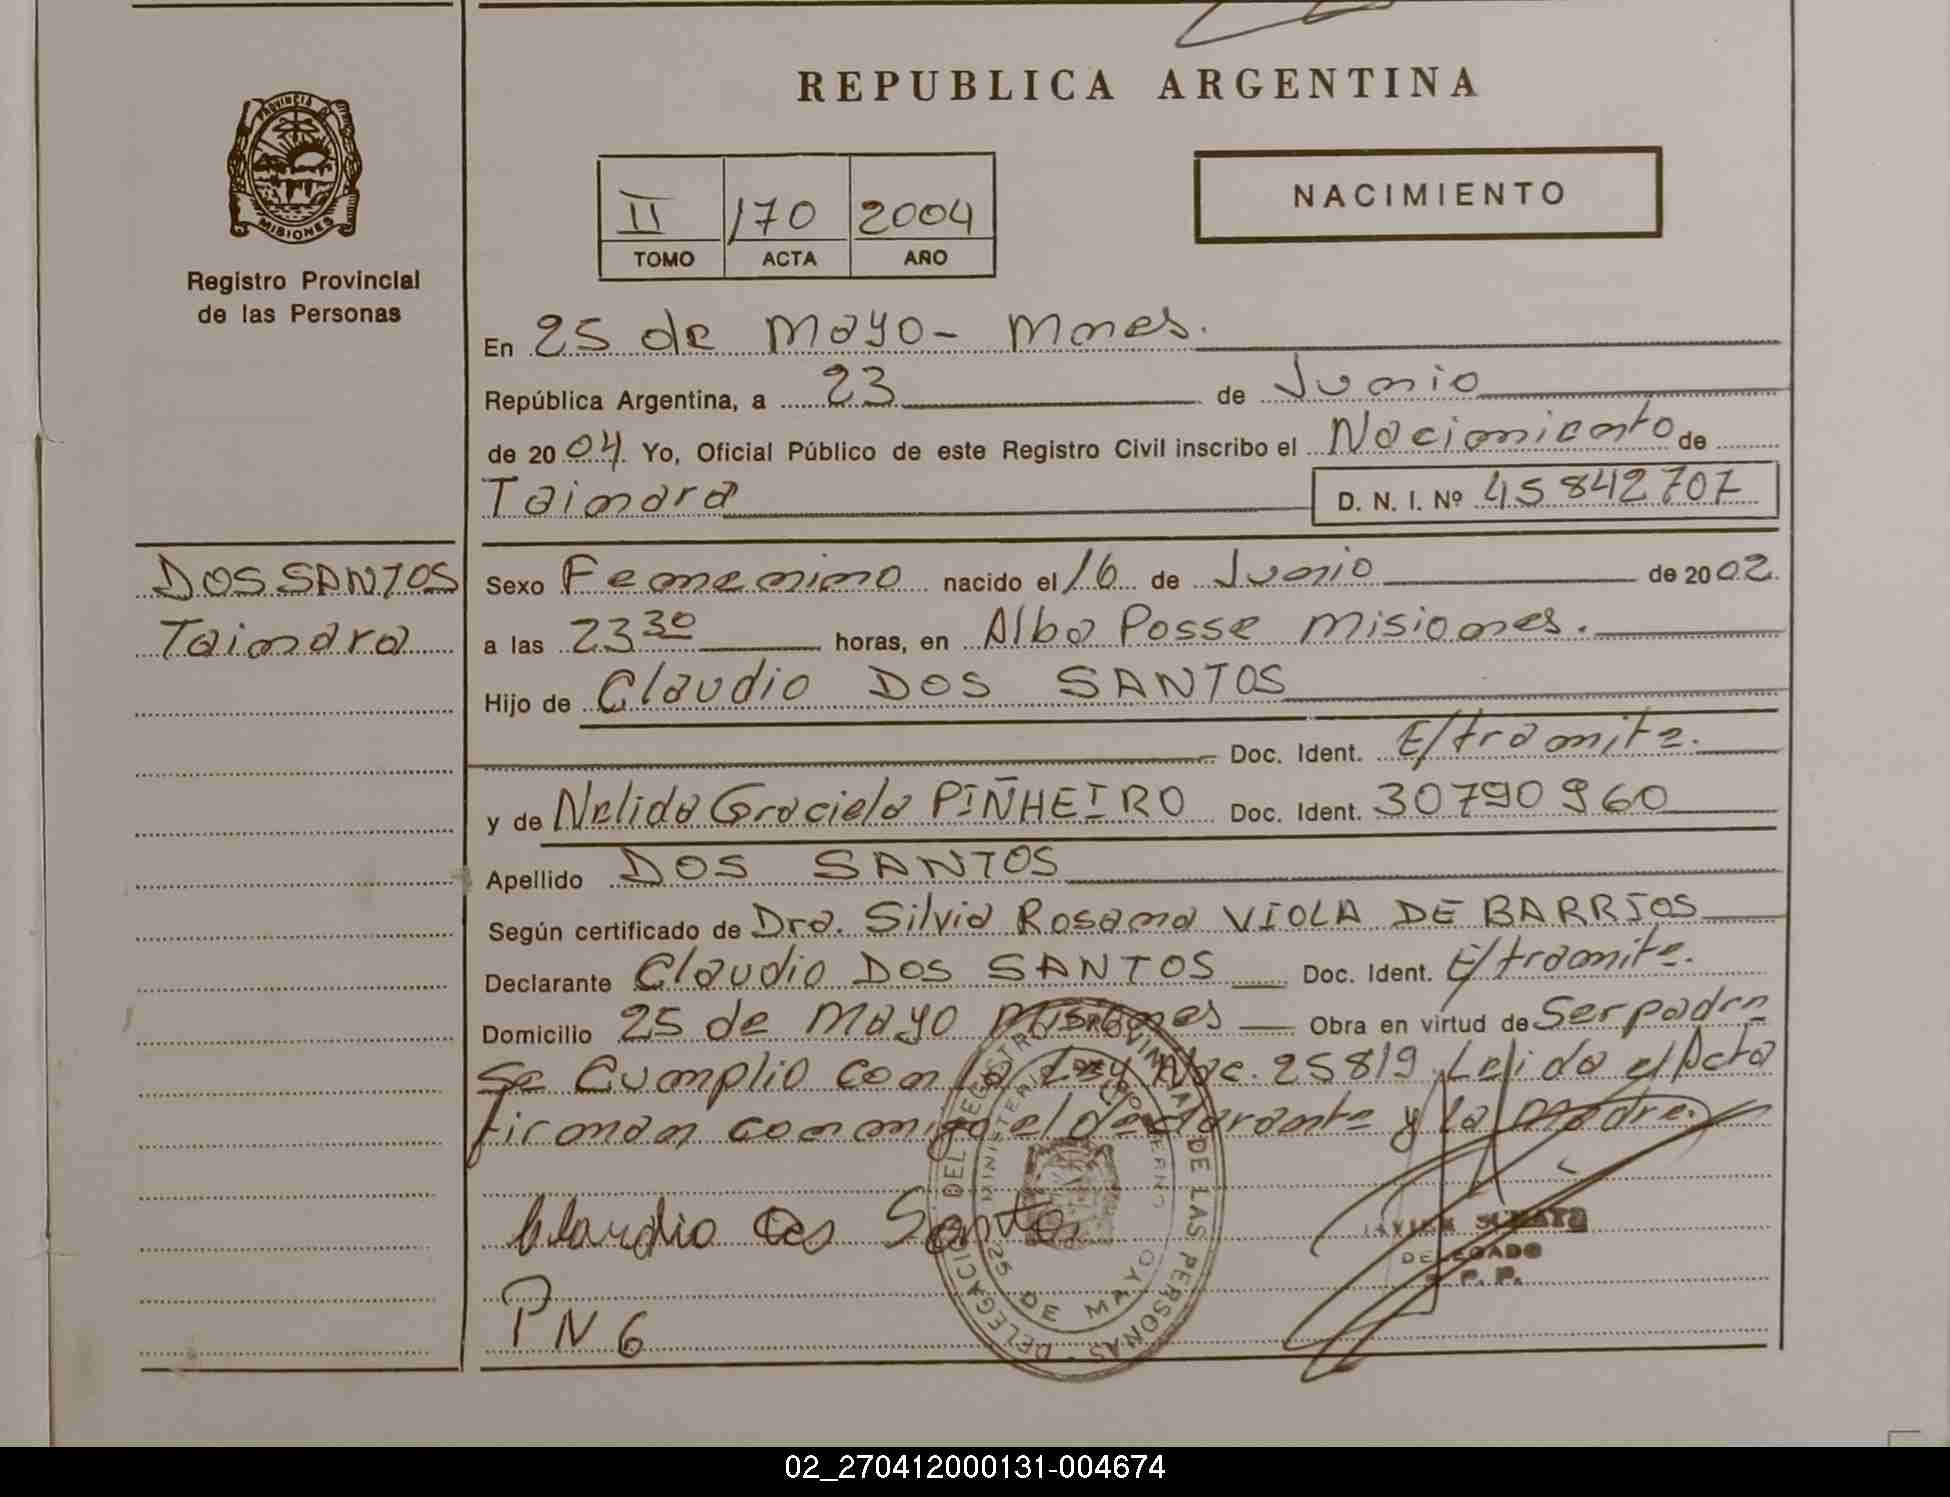 REPUBLICA ARGENTINA
PROVINCIA DE MISIONES
Registro Provincial
de las Personas
II 170 2004
TOMO ACTA AÑO
NACIMIENTO
En 25 de Mayo - Mnes.
República Argentina, a 23 de Junio
de 2004. Yo, Oficial Público de este Registro Civil inscribo el Nacimiento de
Tainara D. N. I. Nº 45842707
DOS SANTOS
Tainara
Sexo Femenino nacido el 16 de Junio de 2002
a las 23 30 horas, en Alba Posse Misiones.
Hijo de Claudio DOS SANTOS
Doc. Ident. E/tramite.
y de Nelida Graciela PIÑHEIRO Doc. Ident. 30790960
Apellido DOS SANTOS
Según certificado de Dra. Silvia Rosana VIOLA DE BARRIOS
Declarante Claudio DOS SANTOS Doc. Ident. E/tramite.
Domicilio 25 de Mayo Misiones Obra en virtud de Ser padre
Se Cumplio con la Ley Nac. 25819. Leida el Acta
firman conmigo el declarante y la Madre.
Claudio dos Santos
DELEGACION DEL REGISTRO PROVINCIAL DE LAS PERSONAS
MINISTERIO DE GOBIERNO
25 DE MAYO
DELEGADO
R. P. P.
PN 6
02_270412000131-004674